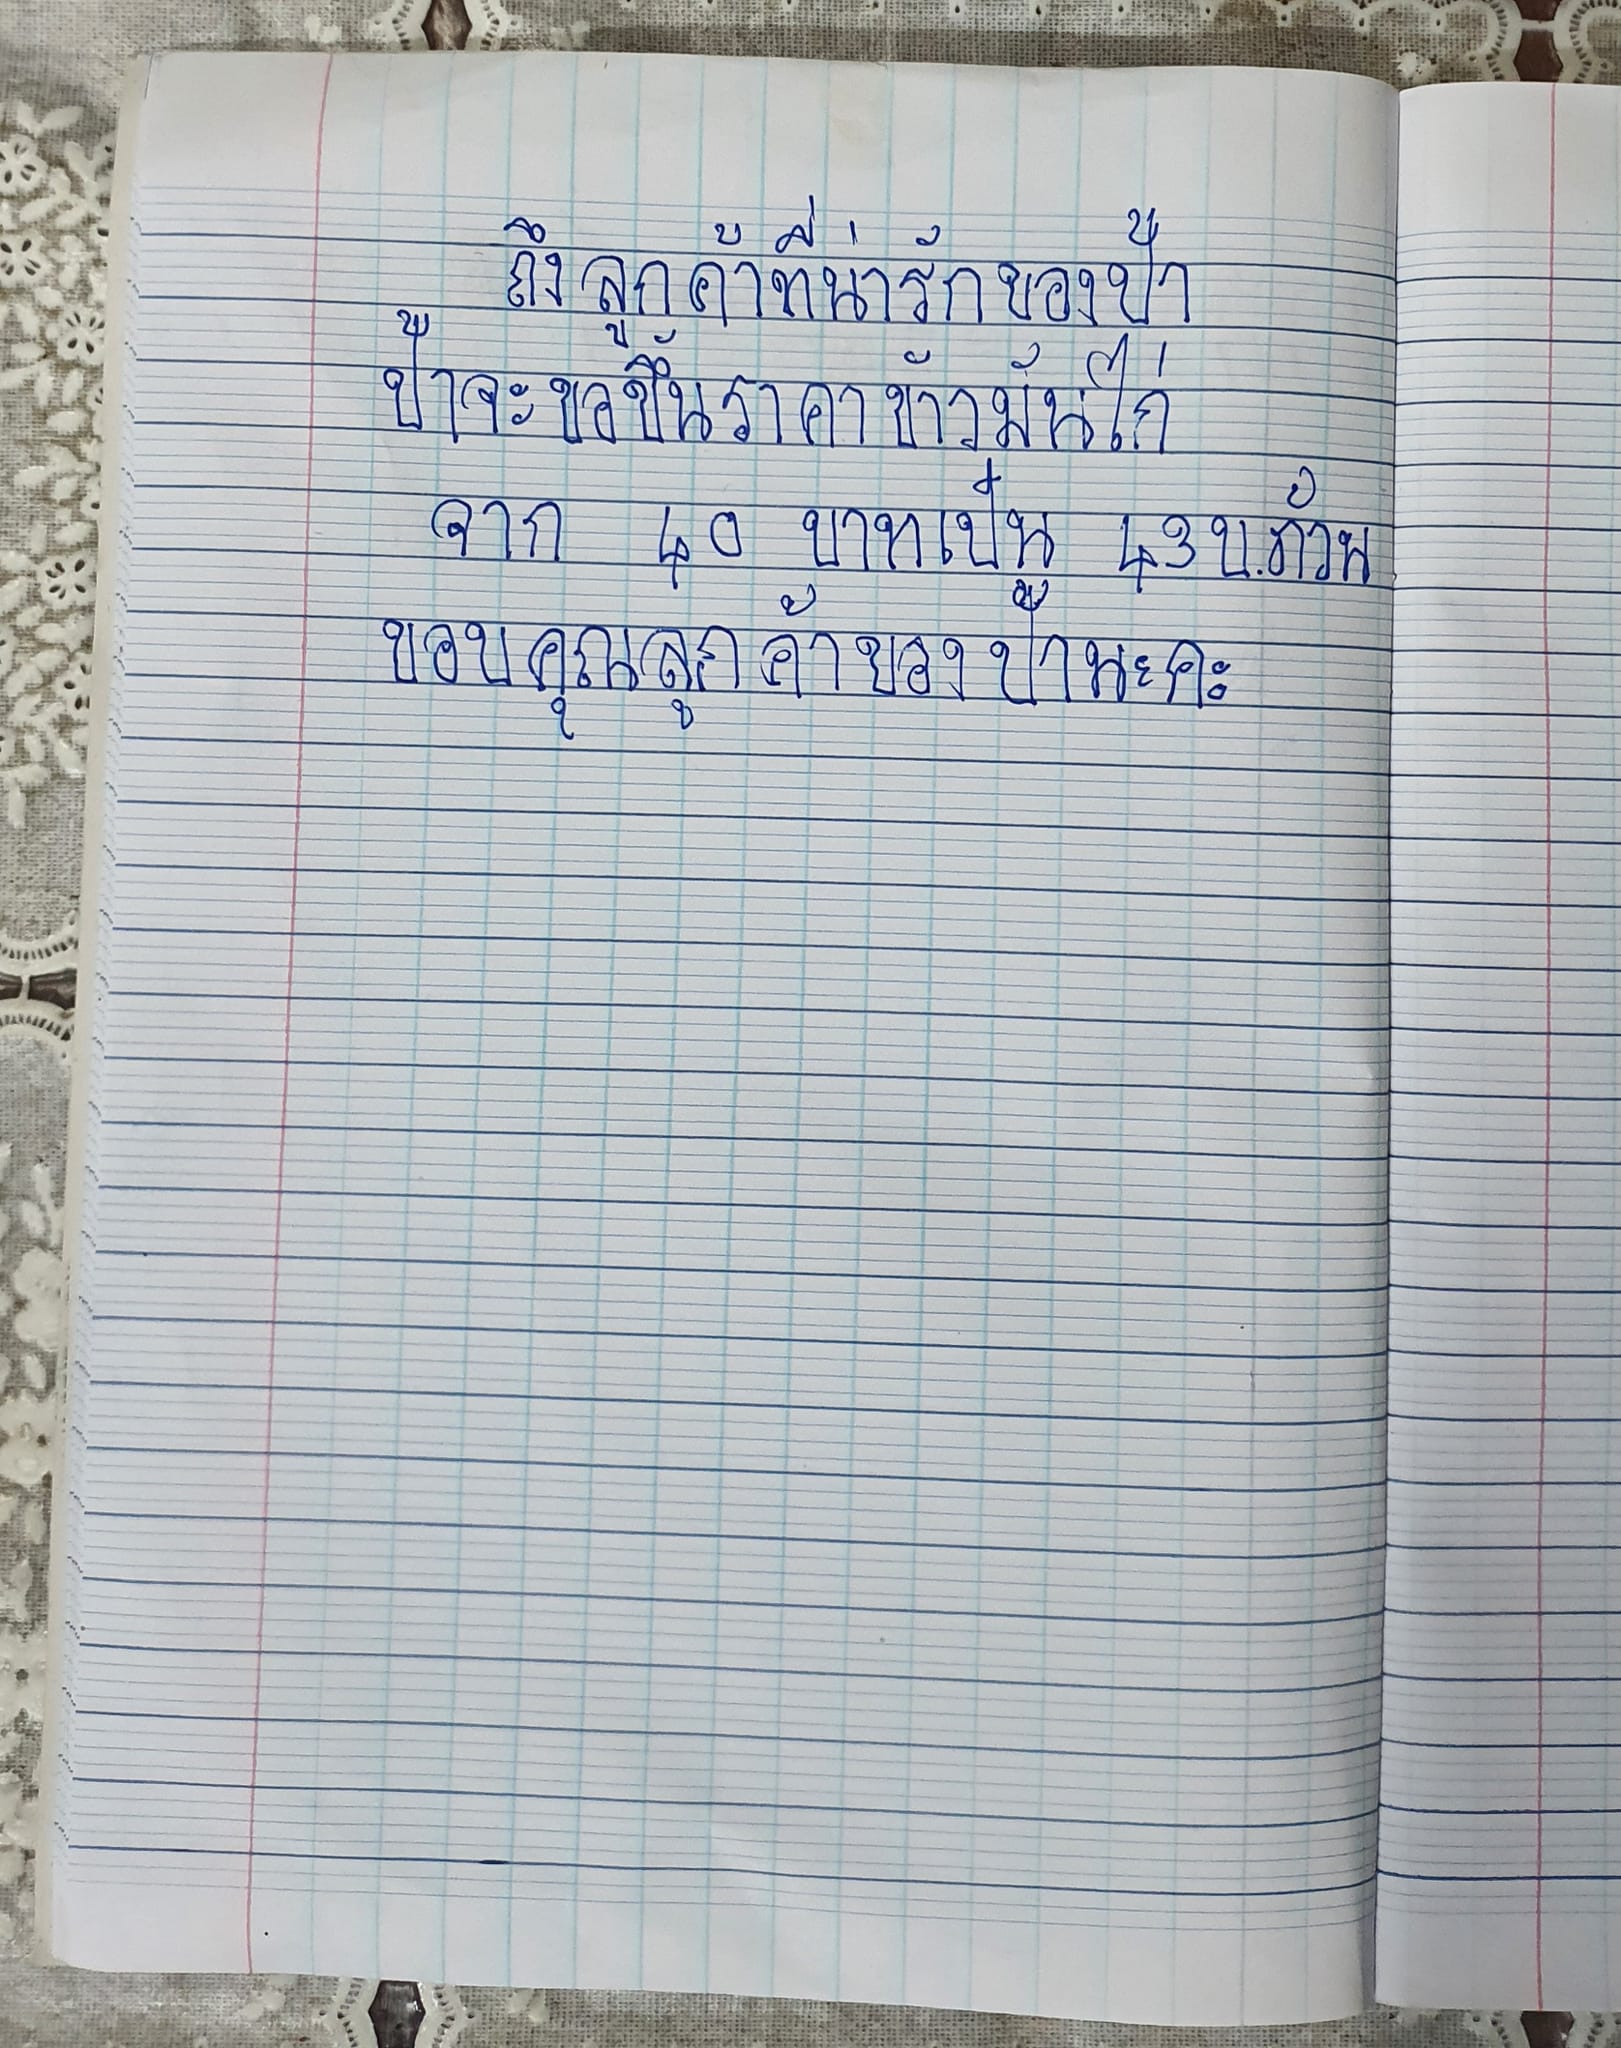 ถึงลูกค้าที่น่ารักของป้า
ป้าจะขอขึ้นราคาข้าวมันไก่
จาก 40 บาทเป็น 43 บ.ถ้วน
ขอบคุณลูกค้าของป้านะคะ